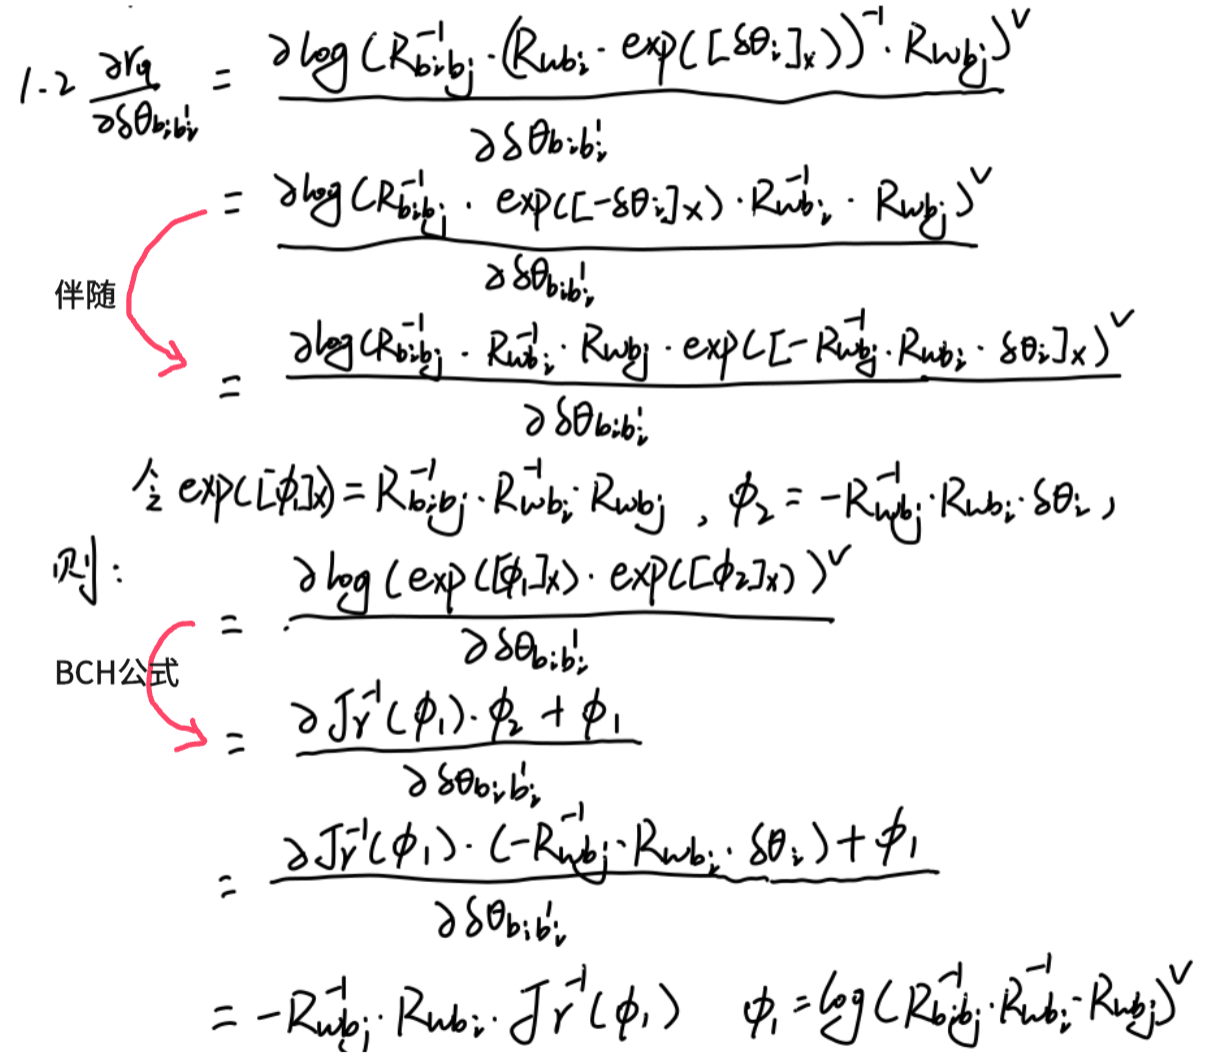 1.2 ∂r_q/∂δθ_{b_i b_i'} = ∂log(R_{b_i b_j}^{-1} · (R_{wb_i} · exp([δθ_i]_×))^{-1} · R_{wb_j})^∨ / ∂δθ_{b_i b_i'}
= ∂log(R_{b_i b_j}^{-1} · exp([-δθ_i]_×) · R_{wb_i}^{-1} · R_{wb_j})^∨ / ∂δθ_{b_i b_i'}
伴随
= ∂log(R_{b_i b_j}^{-1} · R_{wb_i}^{-1} · R_{wb_j} · exp([-R_{wb_j}^{-1} · R_{wb_i} · δθ_i]_×)^∨ / ∂δθ_{b_i b_i'}
令 exp([ϕ_1]_×) = R_{b_i b_j}^{-1} · R_{wb_i}^{-1} · R_{wb_j} , ϕ_2 = -R_{wb_j}^{-1} · R_{wb_i} · δθ_i ,
则:
= ∂log(exp([ϕ_1]_×) · exp([ϕ_2]_×))^∨ / ∂δθ_{b_i b_i'}
BCH公式
= ∂J_r^{-1}(ϕ_1) · ϕ_2 + ϕ_1 / ∂δθ_{b_i b_i'}
= ∂J_r^{-1}(ϕ_1) · (-R_{wb_j}^{-1} · R_{wb_i} · δθ_i) + ϕ_1 / ∂δθ_{b_i b_i'}
= -R_{wb_j}^{-1} · R_{wb_i} · J_r^{-1}(ϕ_1) ϕ_1 = log(R_{b_i b_j}^{-1} · R_{wb_i}^{-1} · R_{wb_j})^∨